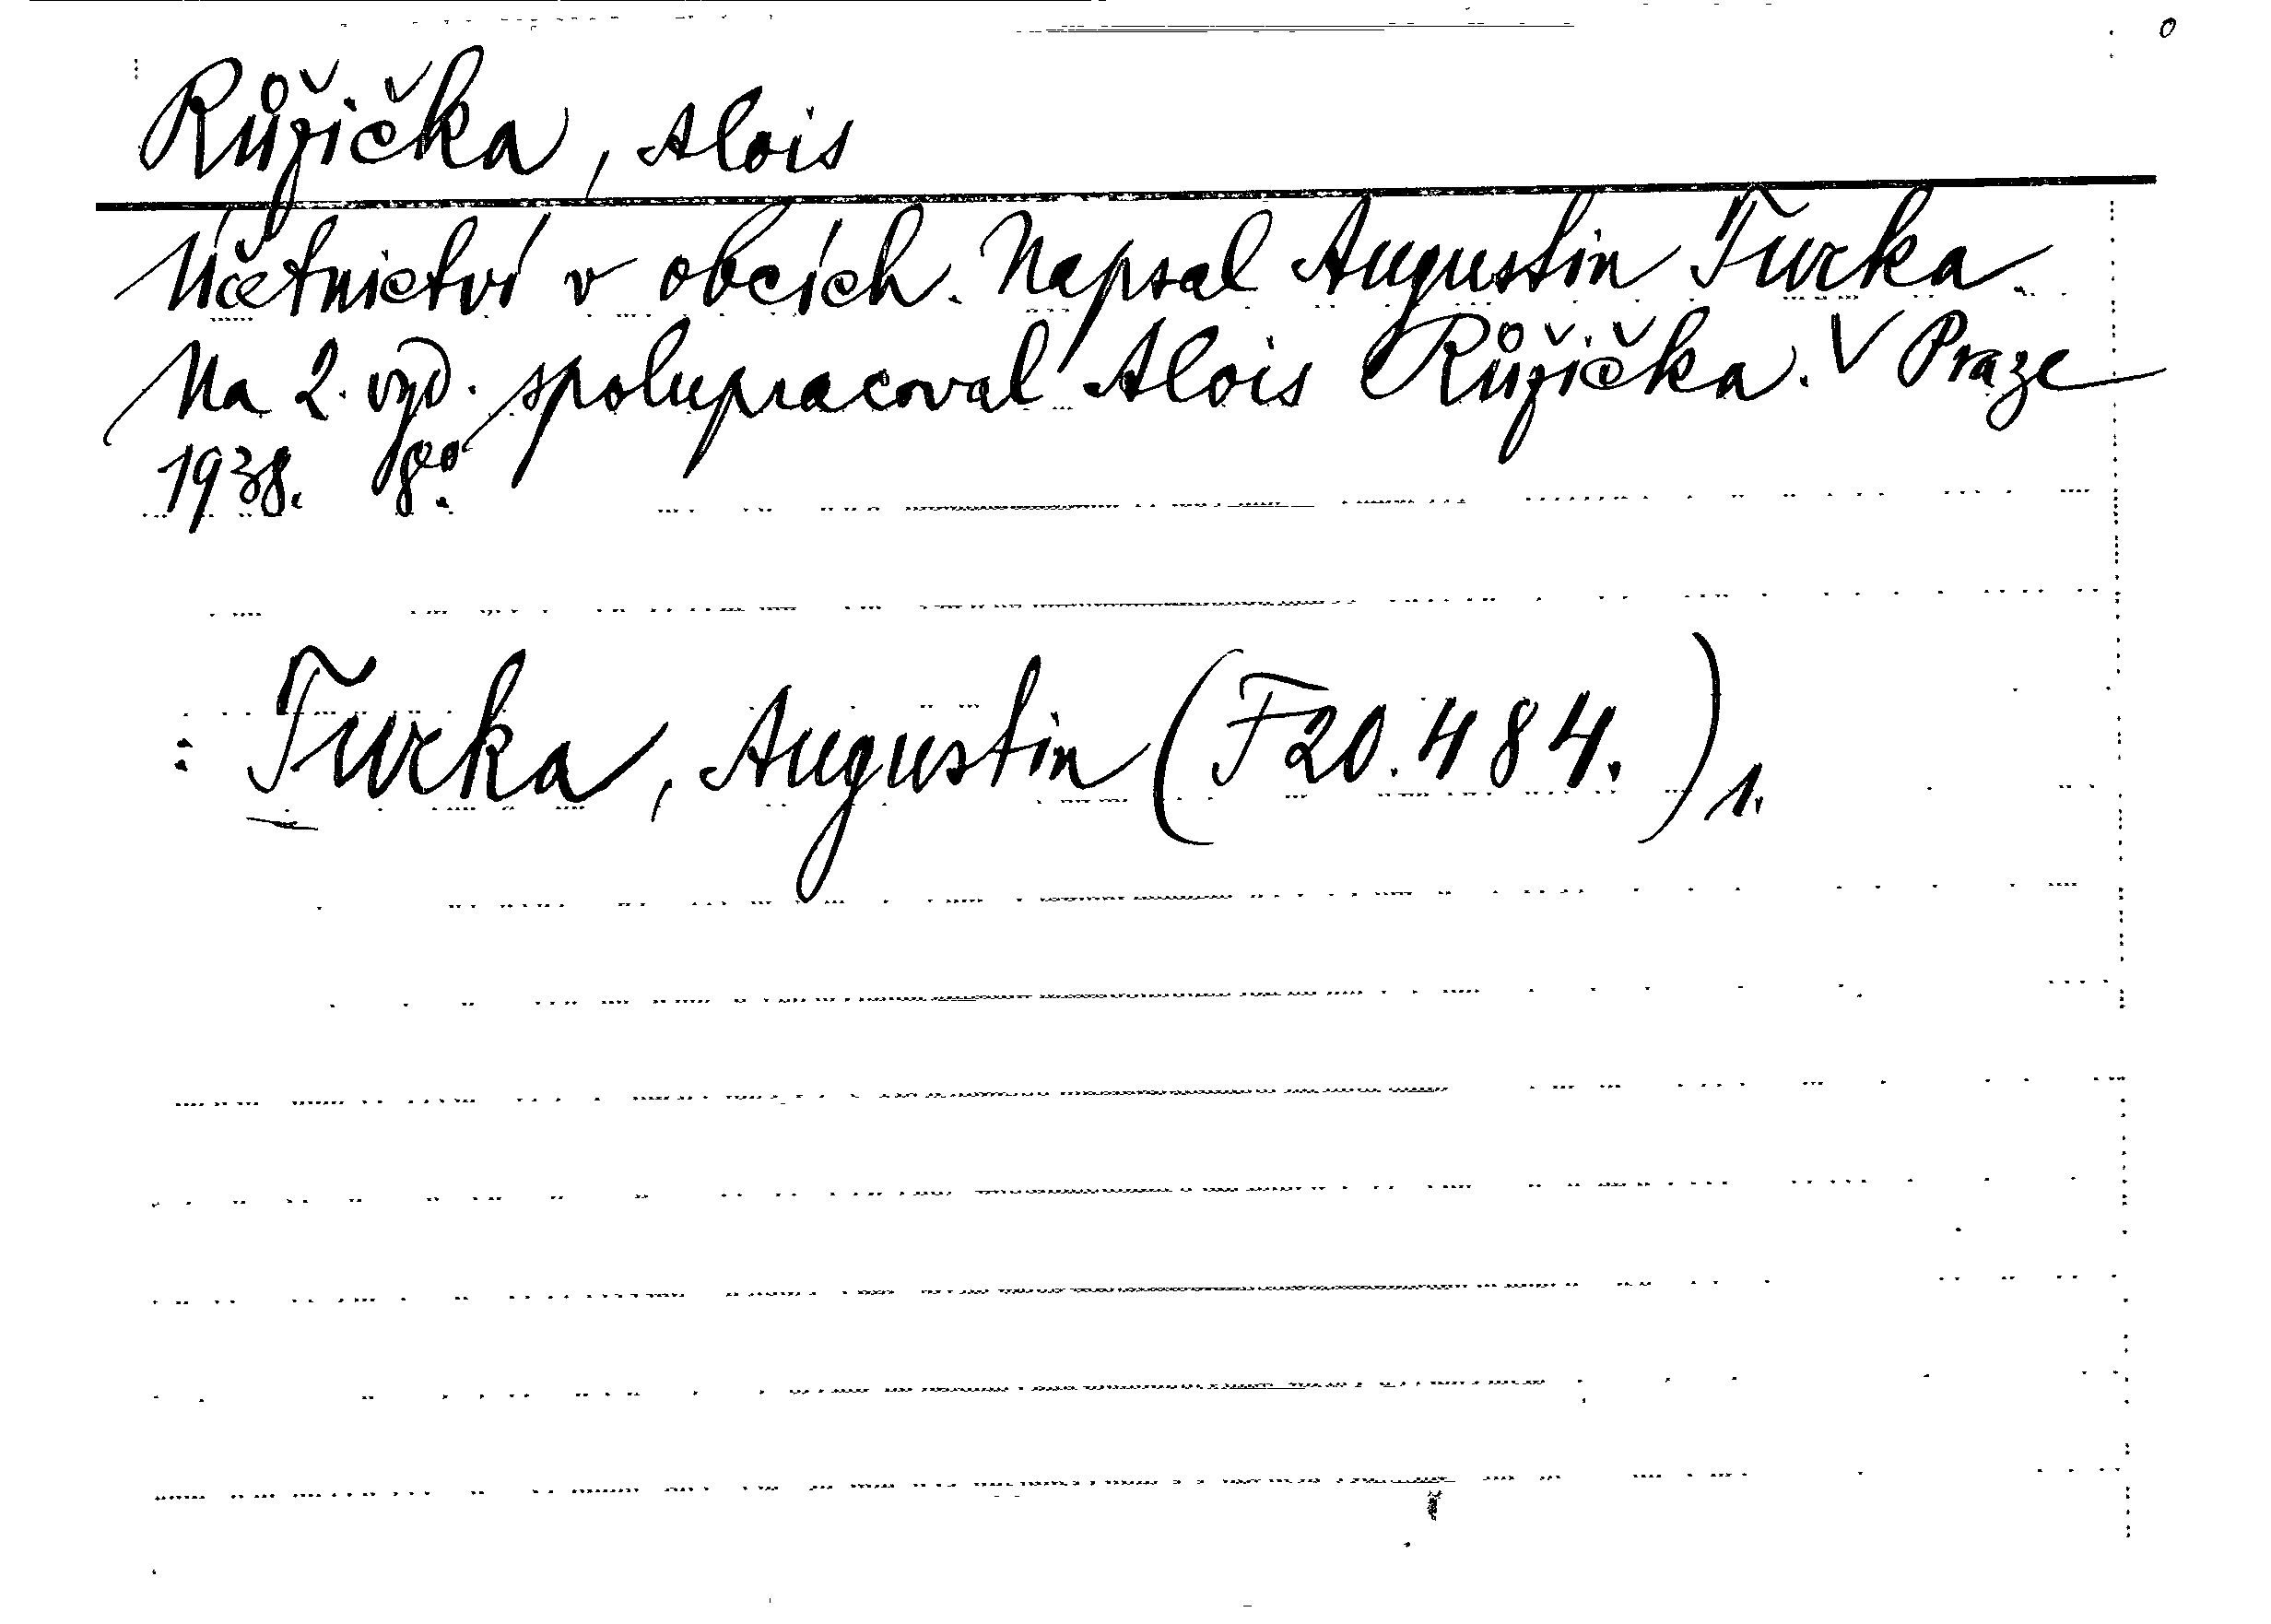 Růžička, Alois
Účetnictví v obcích. Napsal Augustin Turka.
Na 2. vyd. spolupracoval Alois Růžička. V Praze
1938. 8°.
: Turka, Augustin (F20.484.) 1.